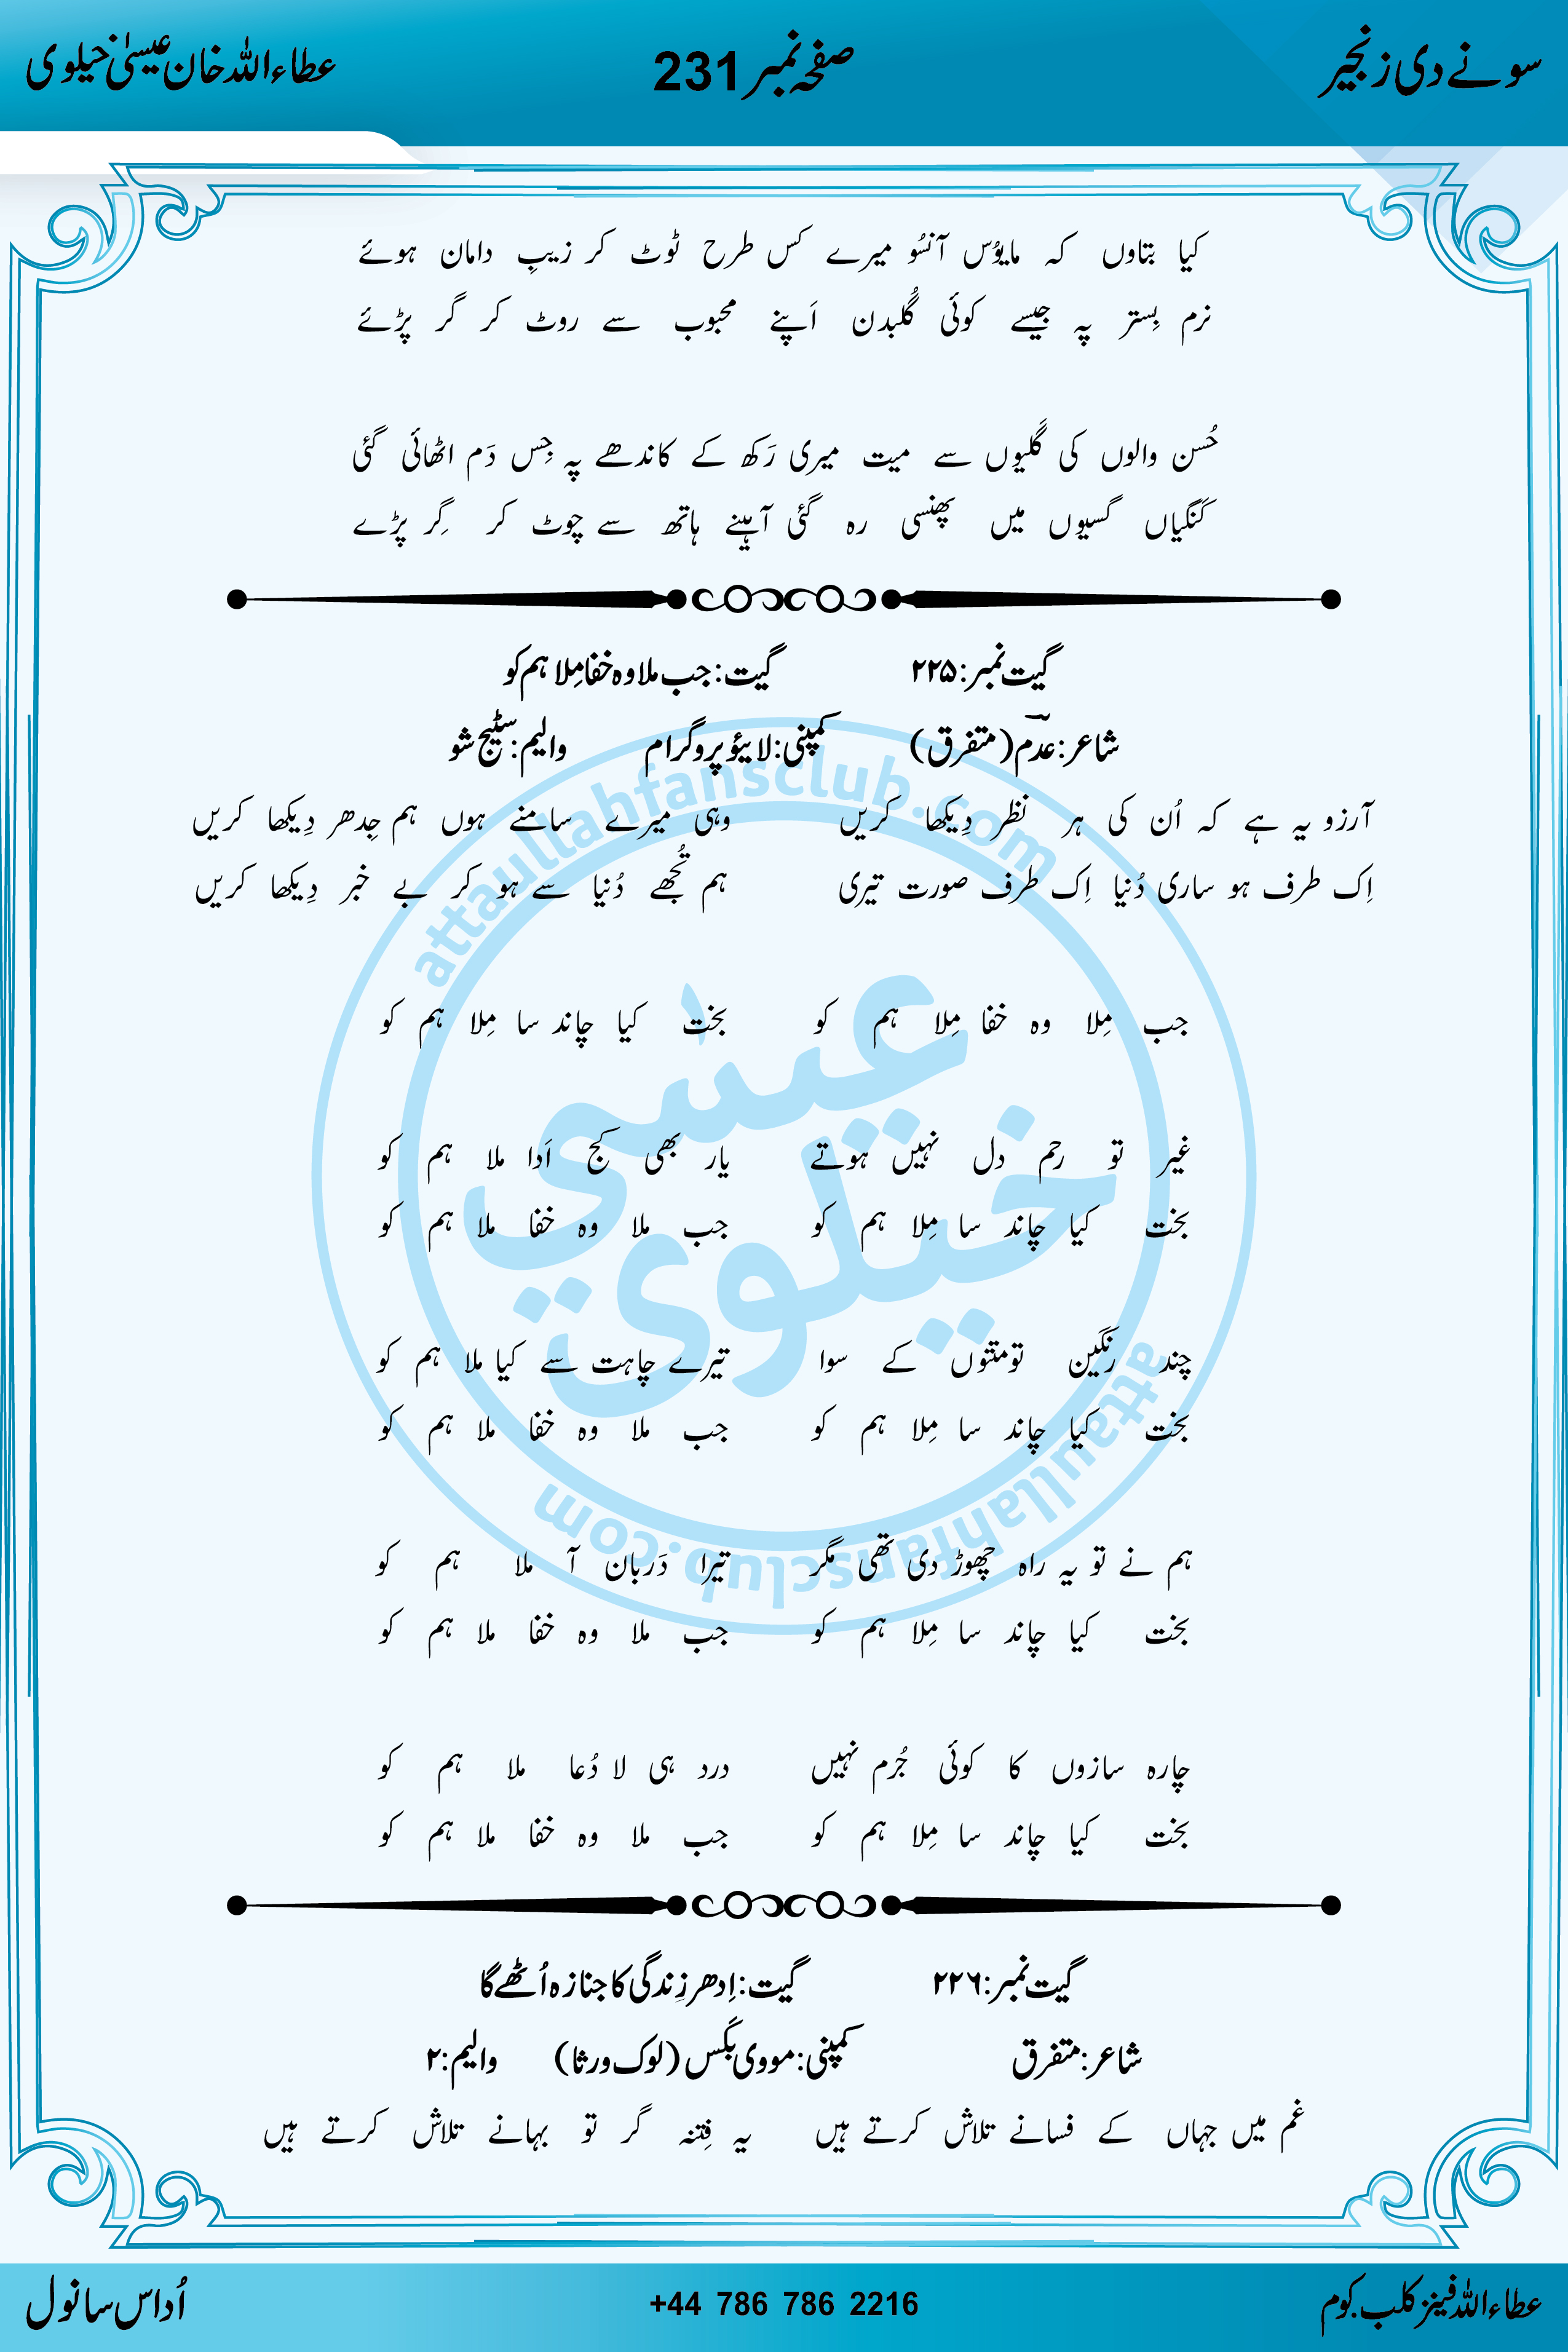 سونے دی زنجیر صفحہ نمبر 231 عطاءاللہ خان عیسیٰ خیلوی
کیا بتاوں کہ مایوُس آنسُو میرے کس طرح ٹوٹ کر زیبِ دامان ہوئے
نرم بِستر پہ جیسے کوئی گُلبدن اَپنے محبوب سے روٹ کر گر پڑئے
حُسن والوں کی گَلیوں سے میت میری رَکھ کے کاندھے پہ جِس دَم اٹھائی گئی
کَنگیاں گسیوں میں پھنسی رہ گئی آہینے ہاتھ سے چوٹ کر گِر پڑے
گیت نمبر: ۲۲۵ گیت: جب ملا وہ خفا مِلا ہم کو
شاعر: عدؔم (متفرق) کمپنی: لائیو پروگرام والیم: سٹیج شو
آرزو یہ ہے کہ اُن کی ہر نظر دِیکھا کریں وہی میرے سامنے ہوں ہم جِدھر دِیکھا کریں
اِک طرف ہو ساری دُنیا اِک طرف صورت تیری ہم تُجھے دُنیا سے ہو کر بے خبر دِیکھا کریں
جب مِلا وہ خفا مِلا ہم کو بخت کیا چاند سا مِلا ہم کو
غیر تو رحم دل نہیں ہوتے یار بھی کج اَدا ملا ہم کو
بخت کیا چاند سا مِلا ہم کو جب ملا وہ خفا ملا ہم کو
چند رَنگین تومتوں کے سوا تیرے چاہت سے کیا ملا ہم کو
بخت کیا چاند سا مِلا ہم کو جب ملا وہ خفا ملا ہم کو
ہم نے تو یہ راہ چھوڑ دی تھی مگر تیرا دَربان آ ملا ہم کو
بخت کیا چاند سا مِلا ہم کو جب ملا وہ خفا ملا ہم کو
چارہ سازوں کا کوئی جُرم نہیں درد ہی لا دُعا ملا ہم کو
بخت کیا چاند سا مِلا ہم کو جب ملا وہ خفا ملا ہم کو
گیت نمبر: ۲۲۶ گیت: اِدھر زِندگی کا جنازہ اُٹھے گا
شاعر: متفرق کمپنی: مووی بَکس (لوک ورثا) والیم: ۲
غم میں جہاں کے فسانے تلاش کرتے ہیں یہ فِتنہ گر تو بہانے تلاش کرتے ہیں
attaullahfansclub.com
عیسٰی
خیلوی
attaullahfansclub.com
عطاءاللہ فینز کلب.کوم +44 786 786 2216 اُداس سانول